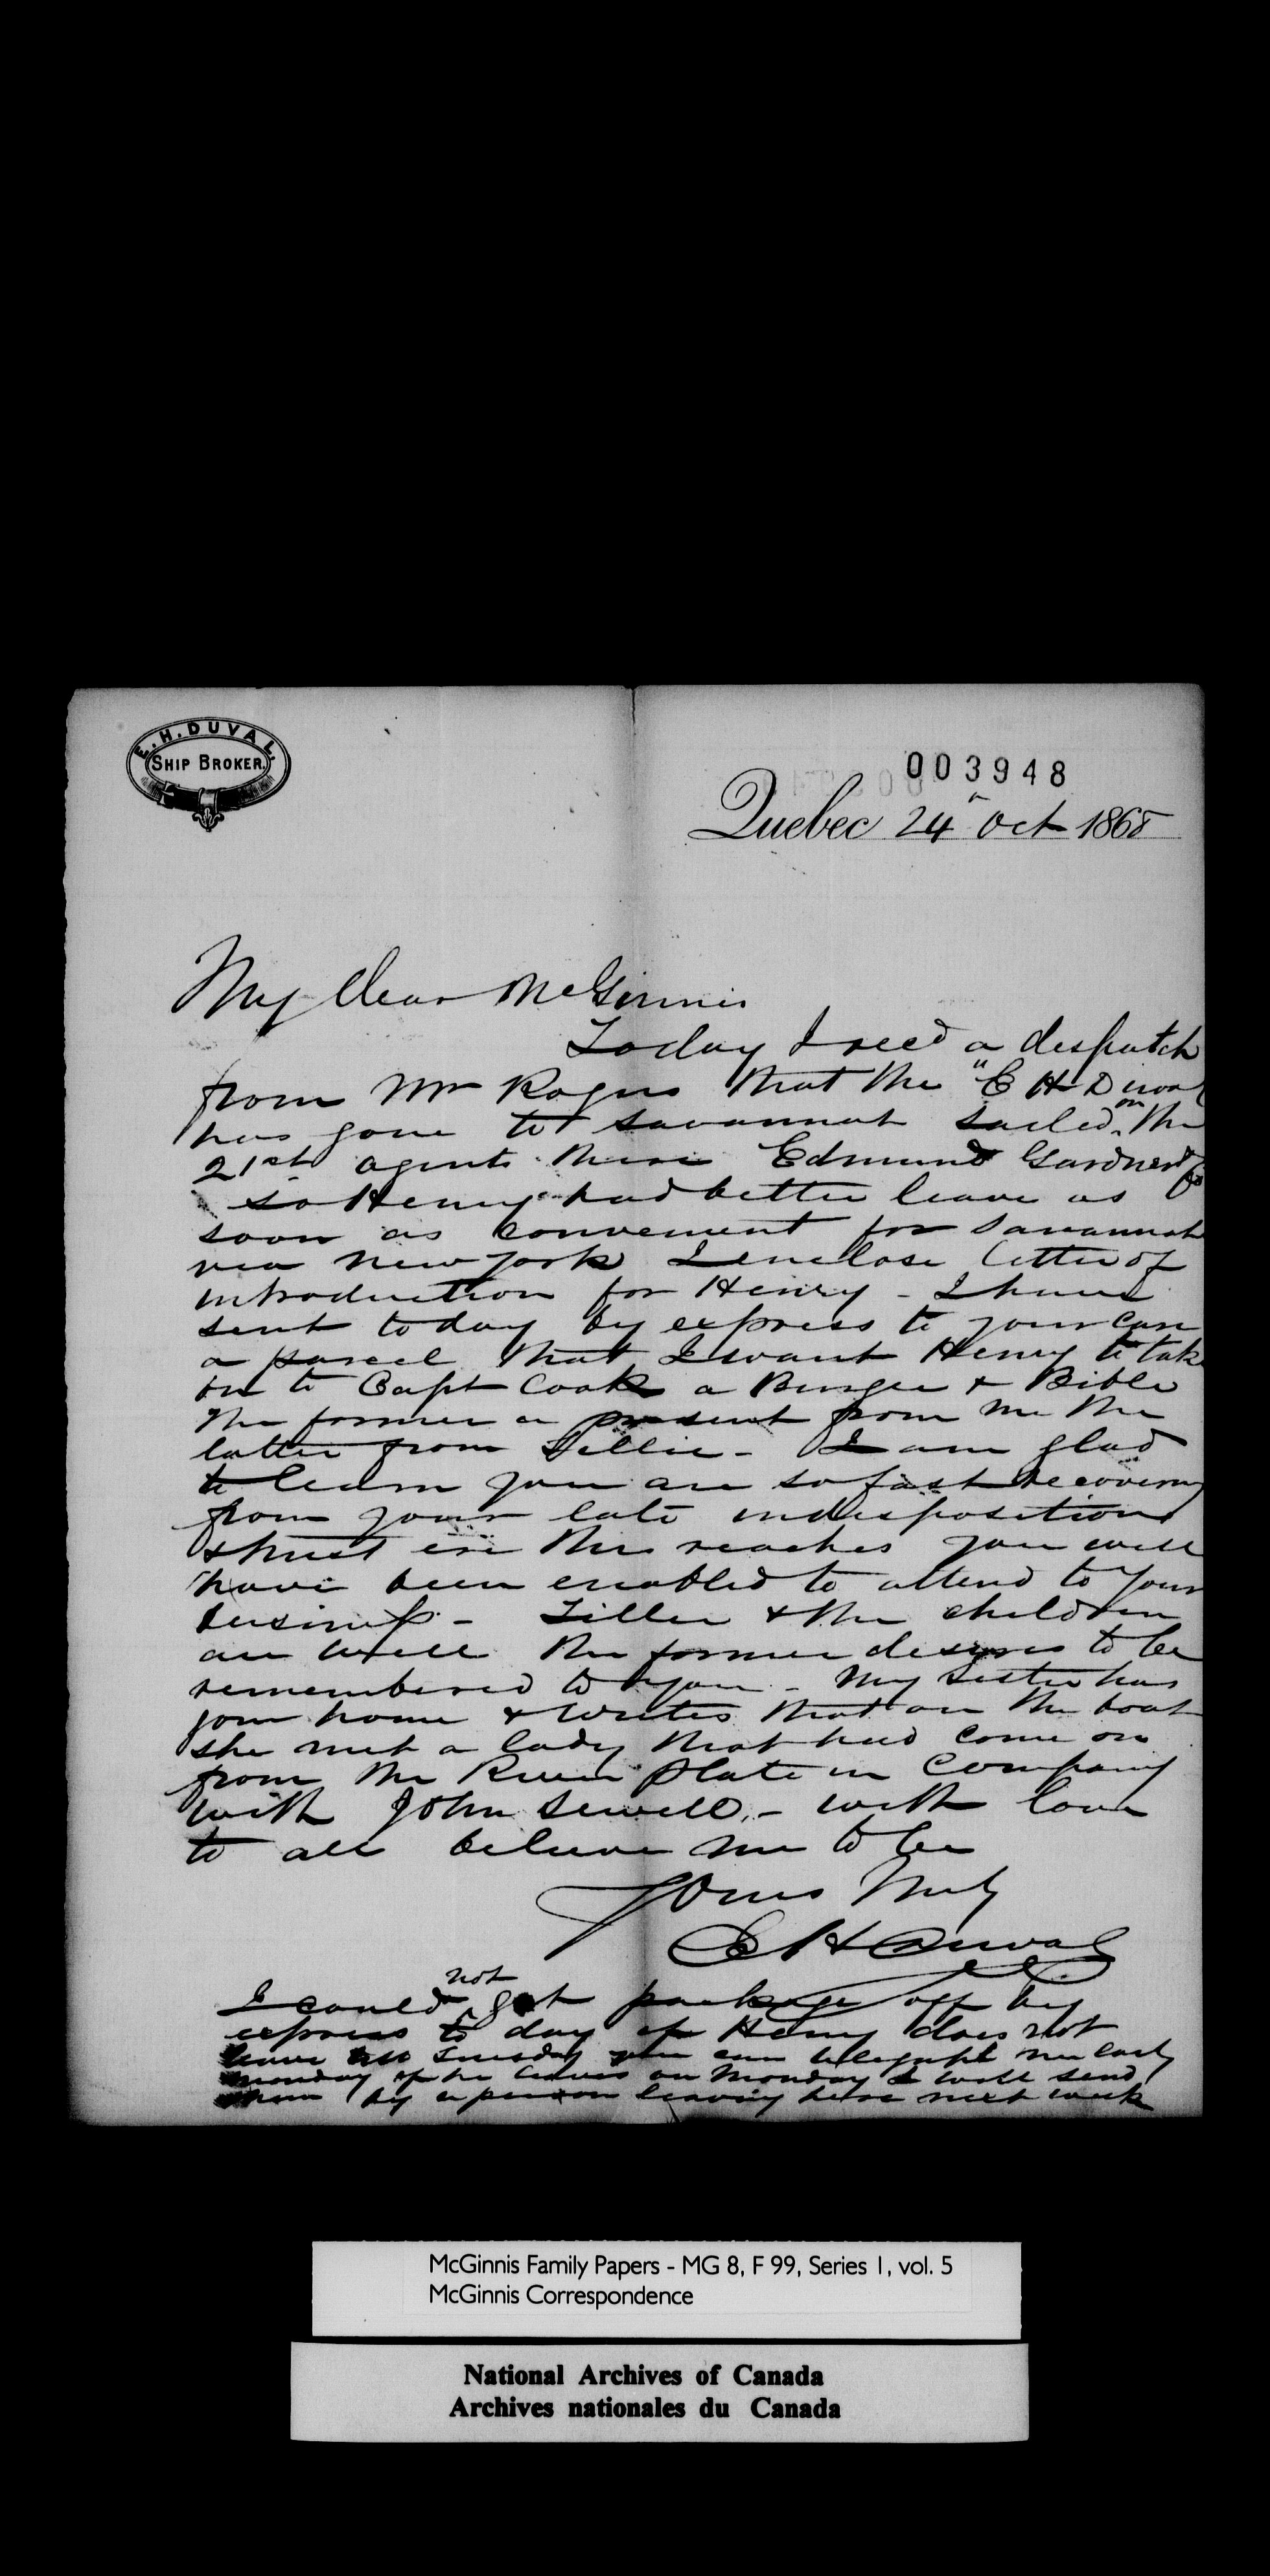 E. H. DUVAL.
SHIP BROKER.
003948
Quebec 24 Oct 1868
My Dear McGinnis
Today I recd a despatch
from Mr Rogers that the "E H Duval
has gone to Savannah sailed on the
21st agents there Edmund Gardner & Co
so Henry had better leave as
soon as convenient for Savannah
via New York I enclose letter of
introduction for Henry - I have
sent today by express to your care
a parcel that I want Henry to take
on to Capt Cook a Burgee & Bible
the former a present from me the
latter from Tillie - I am glad
to learn you are so fast recovering
from your late indisposition
& trust ere this reaches you will
have been enabled to attend to your
business - Tillie & the children
are well the former desires to be
remembered to you - My Sister has
gone home & writes that on the boat
she met a lady that had come on
from the River Plate in Company
with John Sewell. - with love
to all believe me to be
Yours Truly
E H Duval
I could not get package off by
express to day if Henry does not
leave till Tuesday you can telegraph me early
Monday if he leaves on Monday I will send
them by a person leaving here next week
McGinnis Family Papers - MG 8, F 99, Series 1, vol. 5
McGinnis Correspondence
National Archives of Canada
Archives nationales du Canada